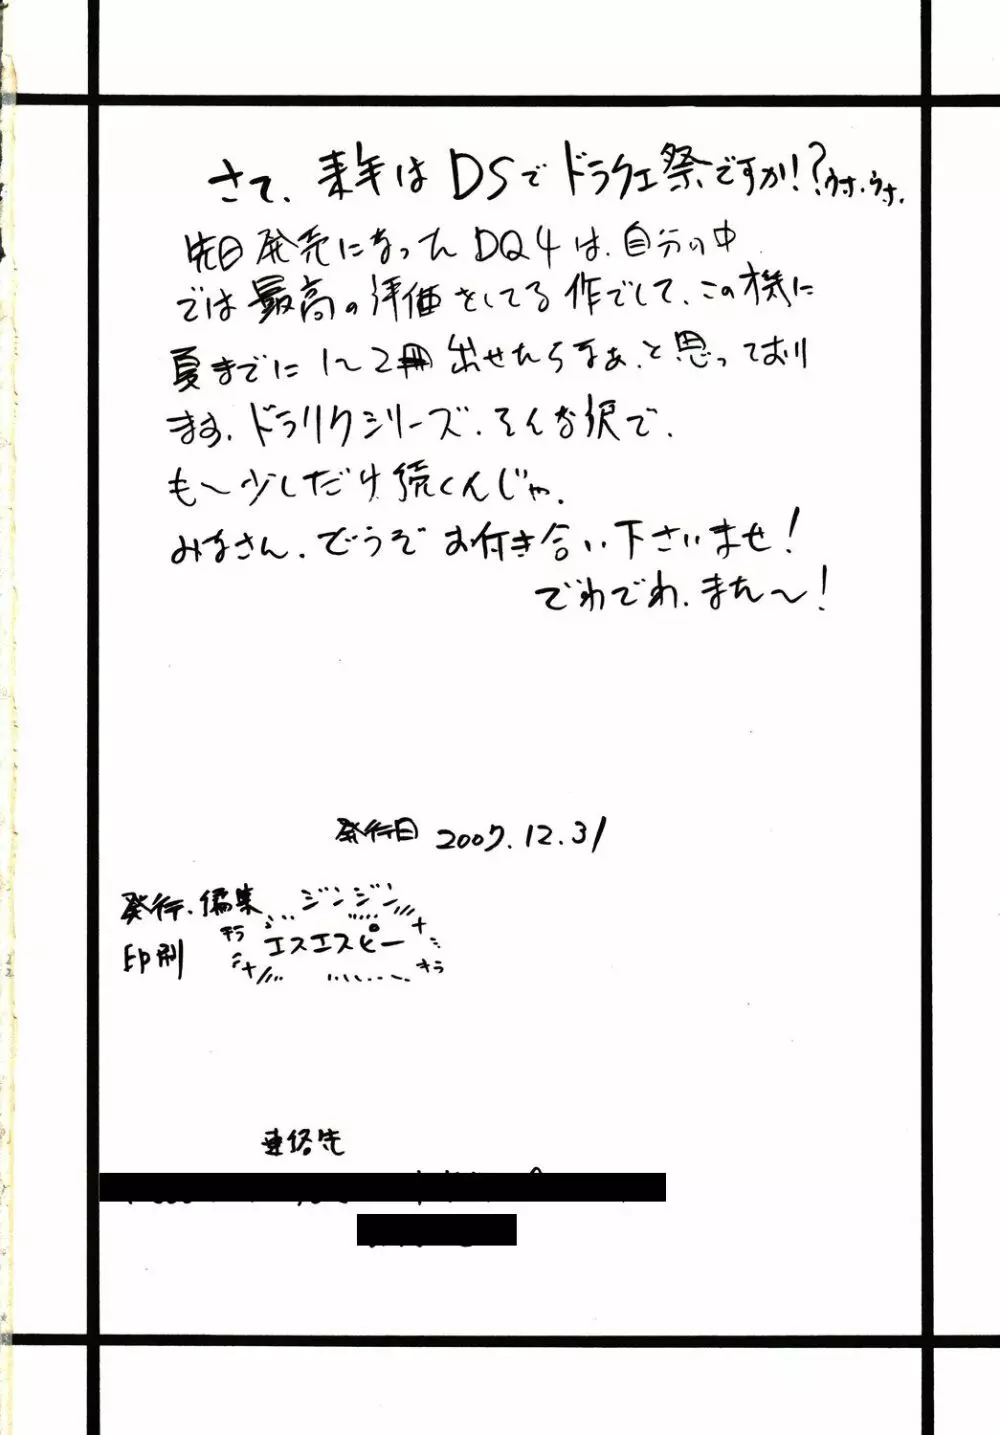 さて、来年はDSでドラクエ祭ですか!?ウホ、ウホ、
先日発売になったDQ4は、自分の中
では最高の評価をしてる作でして、この機に
夏までに1〜2冊出せたらなぁ、と思っており
ます。ドラリクシリーズ、そんな訳で、
も〜少しだけ続くんじゃ。
みなさん、どうぞお付き合い下さいませ!
でわでわ、また〜!
発行日 2007.12.31
発行、編集 ジンジン
印刷 キラ エスエスピー キラ
連絡先